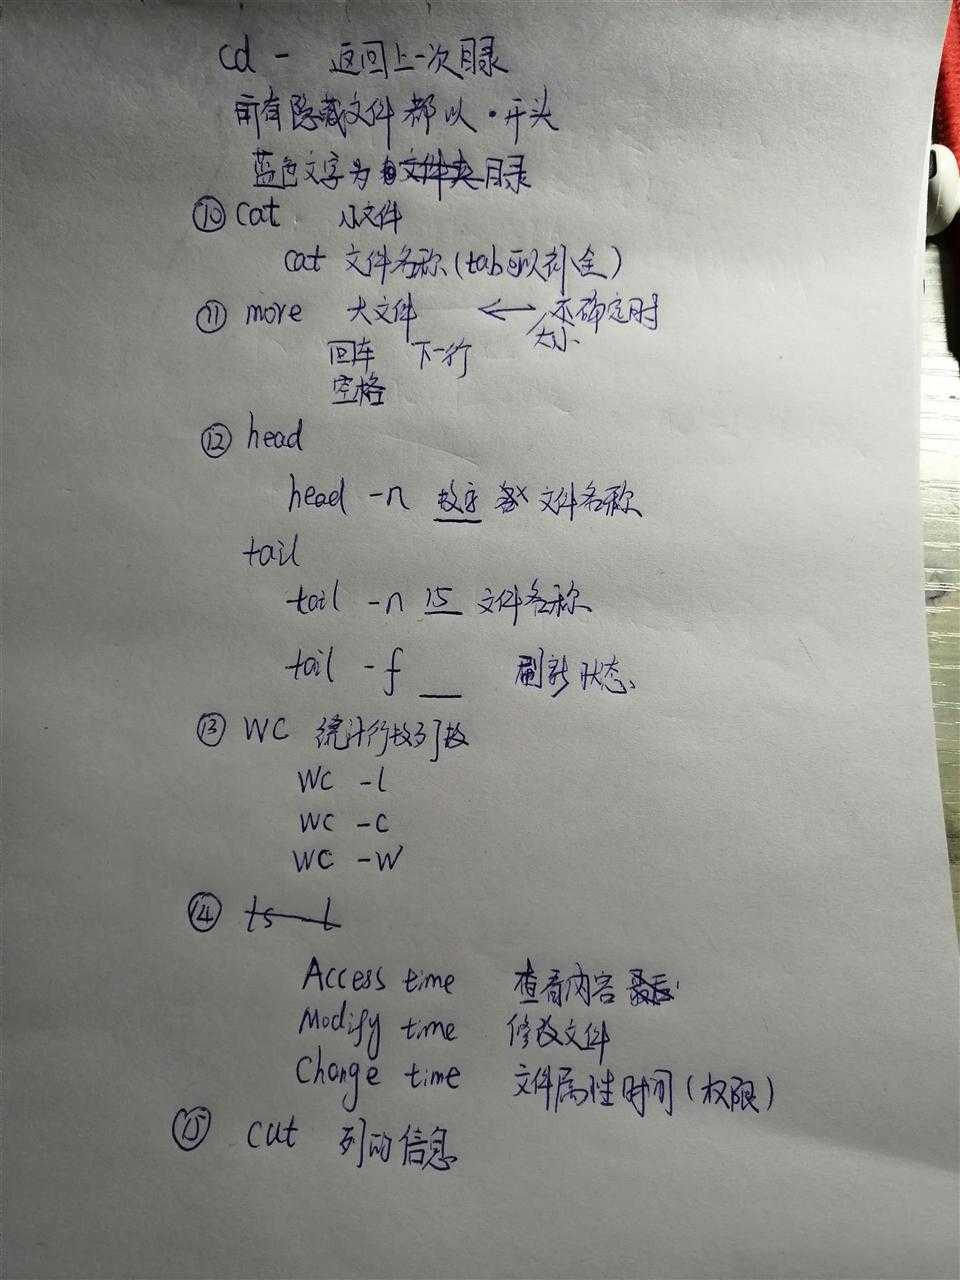 cd - 返回上一次目录
所有隐藏文件都以 · 开头
蓝色文字为目录
⑩ cat 小文件
cat 文件名称 (tab可以补全)
⑪ more 大文件 ⟷ 不确定时
大小
回车 下一行
空格
⑫ head
head -n 数字 文件名称
tail
tail -n 15 文件名称
tail -f __ 刷新状态
⑬ wc 统计行数列数
wc -l
wc -c
wc -w
⑭
Access time 查看内容
Modify time 修改文件
Change time 文件属性时间 (权限)
⑮ cut 列的信息